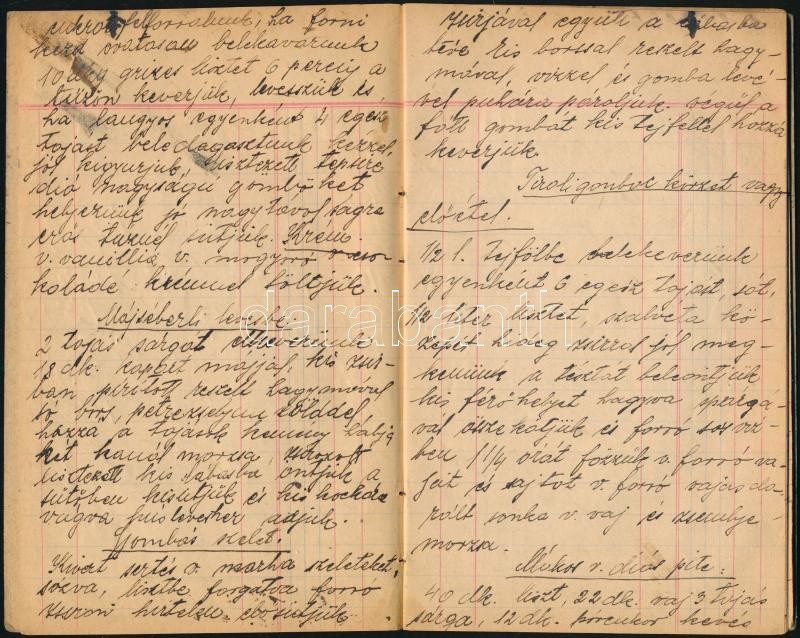 cukrot felforralunk, ha forni
kezd óvatosan belekavarunk
10 dkg grizes lisztet 6 percig a
tűzön keverjük, levesszük és
ha langyos egyenként 4 egész
tojást beledagasztunk kézzel,
jól kigyurjuk, lisztezett tepsire
dió nagyságú gombóket
helyezünk jó nagy távolságra
erős tűznél sütjük. Krém
v. vanillia v. mogyoró v. cso-
koládé krémmel töltjük.
Májséberli levesbe
2 tojás sárgát elkeverünk
18 dk. kapart májjal, kis zsir-
ban piritott reszelt hagymával
só, bors, petrezselyem zölddel,
hozzá a tojások kemény habja
két kanál morzsa zsirozott
lisztezett kis lábasba öntjük a
sütőben kisütjük és kis kockára
vágva húsleveshez adjuk.
Gombás szelet.
Kivert sertés v. marha szeleteket,
sózva, lisztbe forgatva forró
zsiron hirtelen
zsirjával együtt a lábasba
téve kis borssal reszelt hagy-
mával, vizzel és gomba levé-
vel puhára pároljuk. végül a
főtt gombát kis tejfellel hozzá
keverjük.
Tiroli gombóc köret vagy
előétel.
1/2 l. tejfölbe belekeverünk
egyenként 6 egész tojást, sót,
1/2 liter lisztet, szalvéta kö-
zepét hideg zsirral jól meg-
kenünk a tésztát beleöntjük
kis férőhelyet hagyva spárgá-
val összekötjük és forró sós viz-
ben 1 1/4 órát főzzük v. forró va-
jat és sajtot v. forró vajas da-
rált sonka v. vaj és zsemlye-
morzsa.
Mákos v. diós pite:
40 dk. liszt, 22 dk. vaj 3 tojás
sárga, 12 dk. porcukor kevés
darabanth